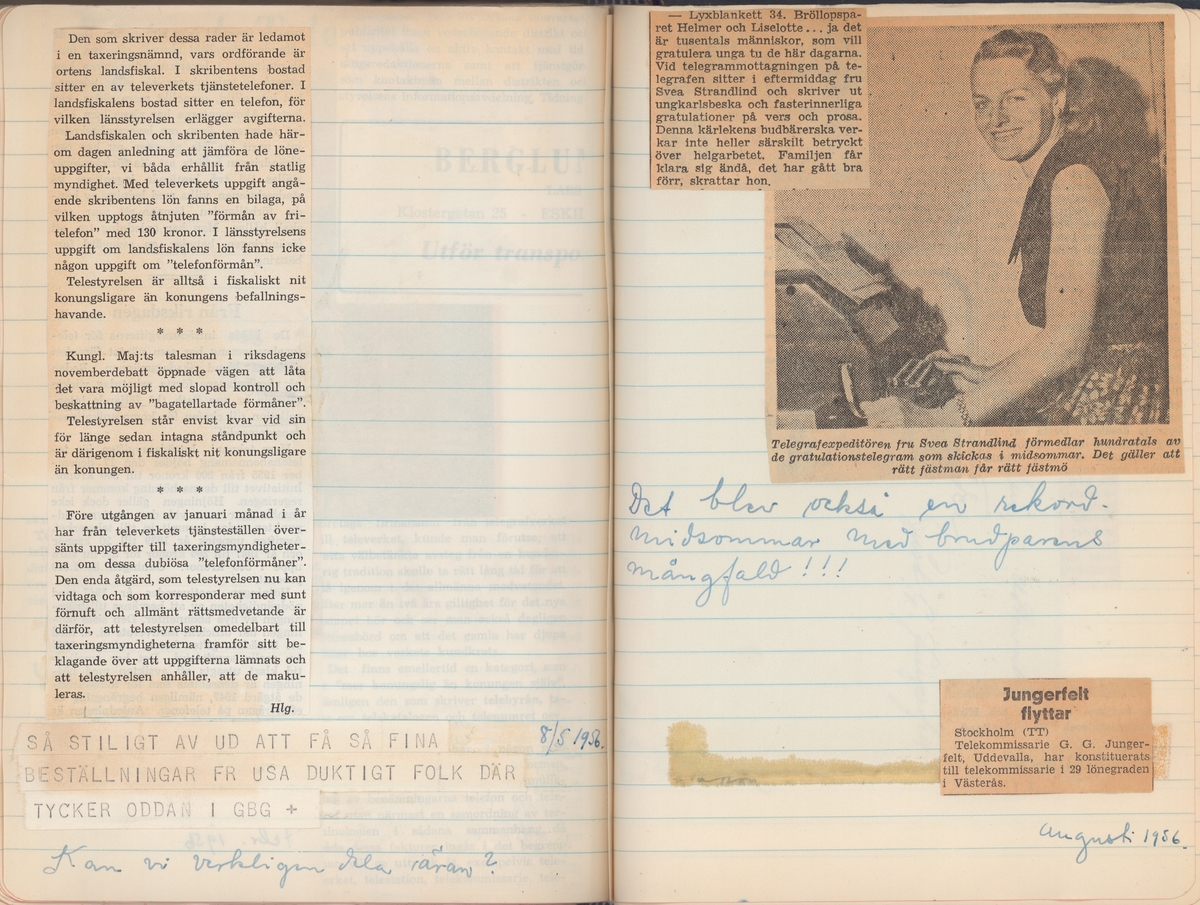 Den som skriver dessa rader är ledamot
i en taxeringsnämnd, vars ordförande är
ortens landsfiskal. I skribentens bostad
sitter en av televerkets tjänstetelefoner. I
landsfiskalens bostad sitter en telefon, för
vilken länsstyrelsen erlägger avgifterna.
Landsfiskalen och skribenten hade här-
om dagen anledning att jämföra de löne-
uppgifter, vi båda erhållit från statlig
myndighet. Med televerkets uppgift angå-
ende skribentens lön fanns en bilaga, på
vilken upptogs åtnjuten "förmån av fri-
telefon" med 130 kronor. I länsstyrelsens
uppgift om landsfiskalens lön fanns icke
någon uppgift om "telefonförmån".
Telestyrelsen är alltså i fiskaliskt nit
konungsligare än konungens befallnings-
havande.
* * *
Kungl. Maj:ts talesman i riksdagens
novemberdebatt öppnade vägen att låta
det vara möjligt med slopad kontroll och
beskattning av "bagatellartade förmåner".
Telestyrelsen står envist kvar vid sin
för länge sedan intagna ståndpunkt och
är därigenom i fiskaliskt nit konungsligare
än konungen.
* * *
Före utgången av januari månad i år
har från televerkets tjänsteställen över-
sänts uppgifter till taxeringsmyndigheter-
na om dessa dubiösa "telefonförmåner".
Den enda åtgärd, som telestyrelsen nu kan
vidtaga och som korresponderar med sunt
förnuft och allmänt rättsmedvetande är
därför, att telestyrelsen omedelbart till
taxeringsmyndigheterna framför sitt be-
klagande över att uppgifterna lämnats och
att telestyrelsen anhåller, att de maku-
leras.
Hlg.
SÅ STILIGT AV UD ATT FÅ SÅ FINA
8/5 1956.
BESTÄLLNINGAR FR USA DUKTIGT FOLK DÄR
TYCKER ODDAN I GBG +
Kan vi verkligen dela äran?
— Lyxblankett 34. Bröllopspa-
ret Helmer och Liselotte... ja det
är tusentals människor, som vill
gratulera unga tu de här dagarna.
Vid telegrammottagningen på te-
legrafen sitter i eftermiddag fru
Svea Strandlind och skriver ut
ungkarlsbeska och fasterinnerliga
gratulationer på vers och prosa.
Denna kärlekens budbärerska ver-
kar inte heller särskilt betryckt
över helgarbetet. Familjen får
klara sig ändå, det har gått bra
förr, skrattar hon.
Telegrafexpeditören fru Svea Strandlind förmedlar hundratals av
de gratulationstelegram som skickas i midsommar. Det gäller att
rätt fästman får rätt fästmö
Det blev också en rekord-
midsommar med brudparens
mångfald!!!
Jungerfelt
flyttar
Stockholm (TT)
Telekommissarie G. G. Junger-
felt, Uddevalla, har konstituerats
till telekommissarie i 29 lönegraden
i Västerås.
Augusti 1956.